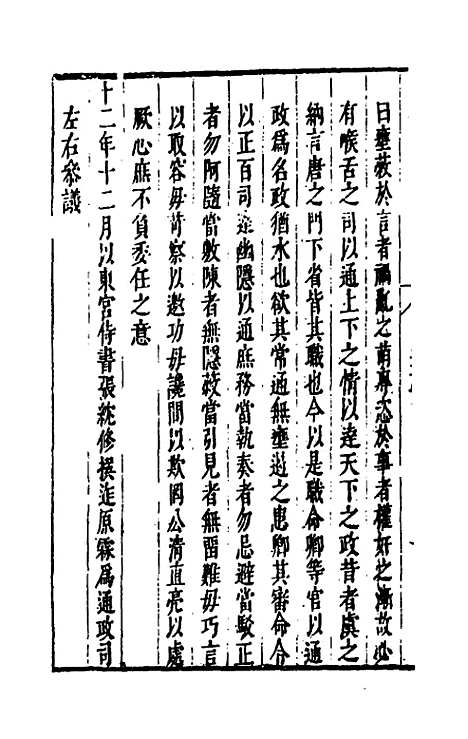 曰壅蔽於言者禍亂之萌專恣於事者權奸之漸故必
有喉舌之司以通上下之情以達天下之政昔者虞之
納言唐之門下省皆其職也今以是職命卿等官以通
政爲名政猶水也欲其常通無壅遏之患卿其審命令
以正百司達幽隱以通庶務當執奏者勿忌避當駁正
者勿阿隨當敷陳者無隱蔽當引見者無留難毋巧言
以取容毋苛察以邀功毋讒間以欺罔公清直亮以處
厥心庶不負委任之意
十二年十二月以東宮侍書張紞修撰進原霖爲通政司
左右叅議